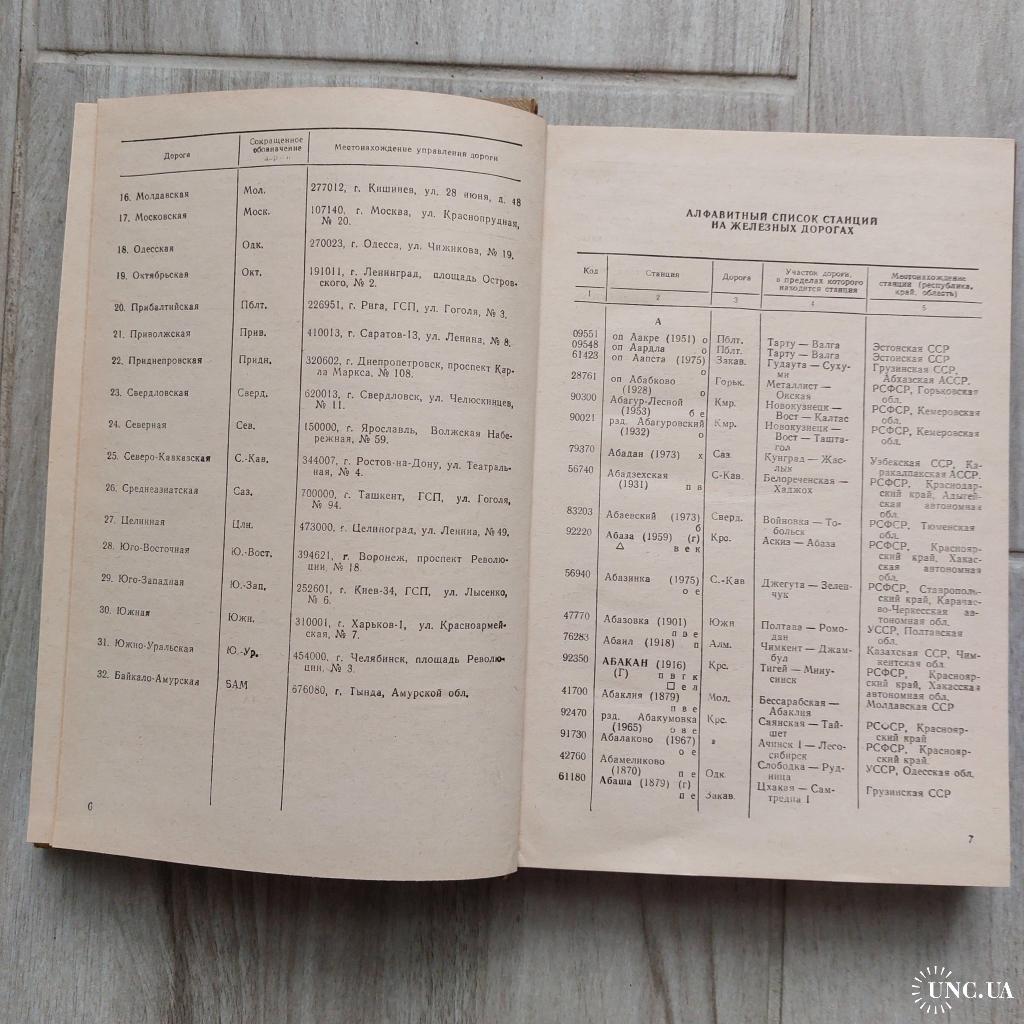 Дорога
Сокращенное
обозначение
Местонахождение управления дороги
16. Молдавская Мол. 277012, г. Кишинев, ул. 28 июня, д. 48
17. Московская Моск. 107140, г. Москва, ул. Краснопрудная,
№ 20.
18. Одесская Одк. 270023, г. Одесса, ул. Чижикова, № 19.
19. Октябрьская Окт. 191011, г. Ленинград, площадь Остров-
ского, № 2.
20. Прибалтийская Пблт. 226951, г. Рига, ГСП, ул. Гоголя, № 3.
21. Приволжская Прив. 410013, г. Саратов-13, ул. Ленина, № 8.
22. Приднепровская Придн. 320602, г. Днепропетровск, проспект Кар-
ла Маркса, № 108.
23. Свердловская Сверд. 620013, г. Свердловск, ул. Челюскинцев,
№ 11.
24. Северная Сев. 150000, г. Ярославль, Волжская Набе-
режная, № 59.
25. Северо-Кавказская С.-Кав. 344007, г. Ростов-на-Дону, ул. Театраль-
ная, № 4.
26. Среднеазиатская Саз. 700000, г. Ташкент, ГСП, ул. Гоголя,
№ 94.
27. Целинная Цлн. 473000, г. Целиноград, ул. Ленина, № 49.
28. Юго-Восточная Ю.-Вост. 394621, г. Воронеж, проспект Револю-
ции, № 18.
29. Юго-Западная Ю.-Зап. 252601, г. Киев-34, ГСП, ул. Лысенко,
№ 6.
30. Южная Южн. 310001, г. Харьков-1, ул. Красноармей-
ская, № 7.
31. Южно-Уральская Ю.-Ур. 454000, г. Челябинск, площадь Револю-
ции, № 3.
32. Байкало-Амурская БАМ 676080, г. Тында, Амурской обл.
6
АЛФАВИТНЫЙ СПИСОК СТАНЦИЙ
НА ЖЕЛЕЗНЫХ ДОРОГАХ
Код Станция Дорога Участок дороги, Местонахождение
в пределах которого станции (республика,
находится станция край, область)
1 2 3 4 5
А
09551 оп Аакре (1951) о Пблт. Тарту — Валга Эстонская ССР
09548 оп Аардла о Пблт. Тарту — Валга Эстонская ССР
61423 оп Аапста (1975) Закав. Гудаута — Суху- Грузинская ССР,
о ми Абхазская АССР.
28761 оп Абабково Горьк. Металлист — РСФСР, Горьковская
(1928) о Окская обл.
90300 Абагур-Лесной Кмр. Новокузнецк — РСФСР, Кемеровская
(1953) б е Вост — Калтас обл.
90021 рзд. Абагуровский Кмр. Новокузнецк — РСФСР, Кемеровская
(1932) о Вост — Ташта- обл.
гол
79370 Абадан (1973) х Саз. Кунград — Жас- Узбекская ССР, Ка-
лых ракалпакская АССР.
56740 Абадзехская С-Кав. Белореченская — РСФСР, Краснодар-
(1931) п в Хаджох ский край, Адыгей-
ская автономная
обл.
83203 Абаевский (1973) Сверд. Войновка — То- РСФСР, Тюменская
б больск обл.
92220 Абаза (1959) (г) Крс. Аскиз — Абаза РСФСР, Краснояр-
△ в е к ский край, Хакас-
ская автономная
обл.
56940 Абазинка (1975) С.-Кав Джегута — Зелен- РСФСР, Ставрополь-
о е чук ский край, Карачае-
во-Черкесская ав-
тономная обл.
47770 Абазовка (1901) Южн Полтава — Ромо- УССР, Полтавская
п в е дан обл.
76283 Абаил (1918) п Алм. Чимкент — Джам- Казахская ССР, Чим-
бул кентская обл.
92350 АБАКАН (1916) Крс. Тигей — Мину- РСФСР, Краснояр-
(Г) п в г к синск ский край, Хакасская
□ е л автономная обл.
41700 Абаклия (1879) Мол. Бессарабская — Молдавская ССР
п в е Абаклия
92470 рзд. Абакумовка Крс. Саянская — Тай- РСФСР, Краснояр-
(1965) о в е шет ский край
91730 Абалаково (1967) Ачинск I — Лесо- РСФСР, Краснояр-
о е сибирск ский край.
42760 Абамеликово Слободка — Руд- УССР, Одесская обл.
(1870) п е Одк. ница
61180 Абаша (1879) (г) Цхакая — Сам- Грузинская ССР
п е Закав. тредиа I
7
UNC.UA